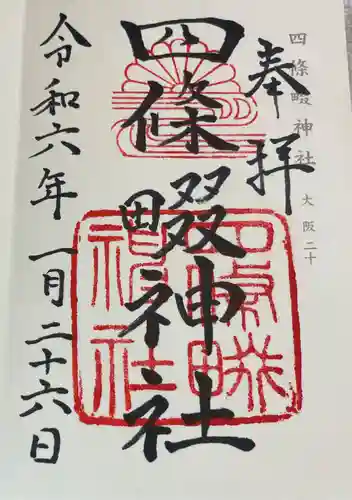 四條畷神社 大阪二十
奉拝
四條畷神社
令和六年一月二十六日
四條畷神社